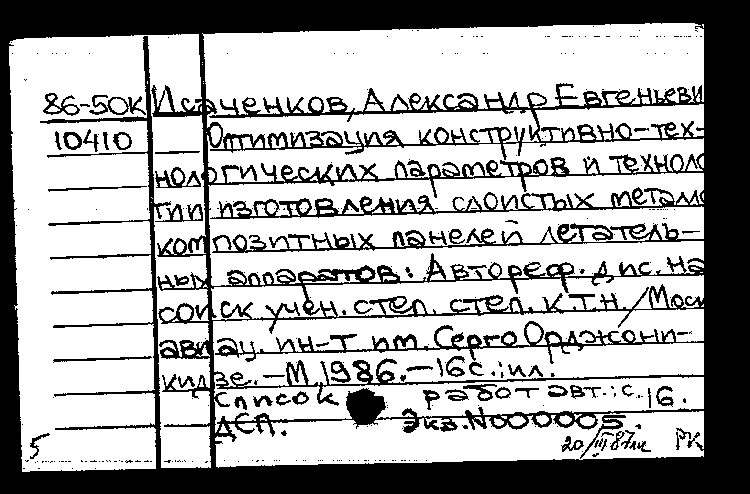 86-50К Исаченков, Александр Евгеньеви
10410 Оптимизация конструктивно-тех-
нологических параметров и техноло
гии изготовления слоистых металло
композитных панелей летатель-
ных аппаратов: Автореф. дис. на
соиск учен. степ. степ. к.т.н. / Моск
авиац. ин-т им. Серго Орджони-
кидзе. - М, 1986. - 16 с.: ил.
Список работ авт.: с. 16.
ДСП. Экз. N000005.
5 20/III 87 РК